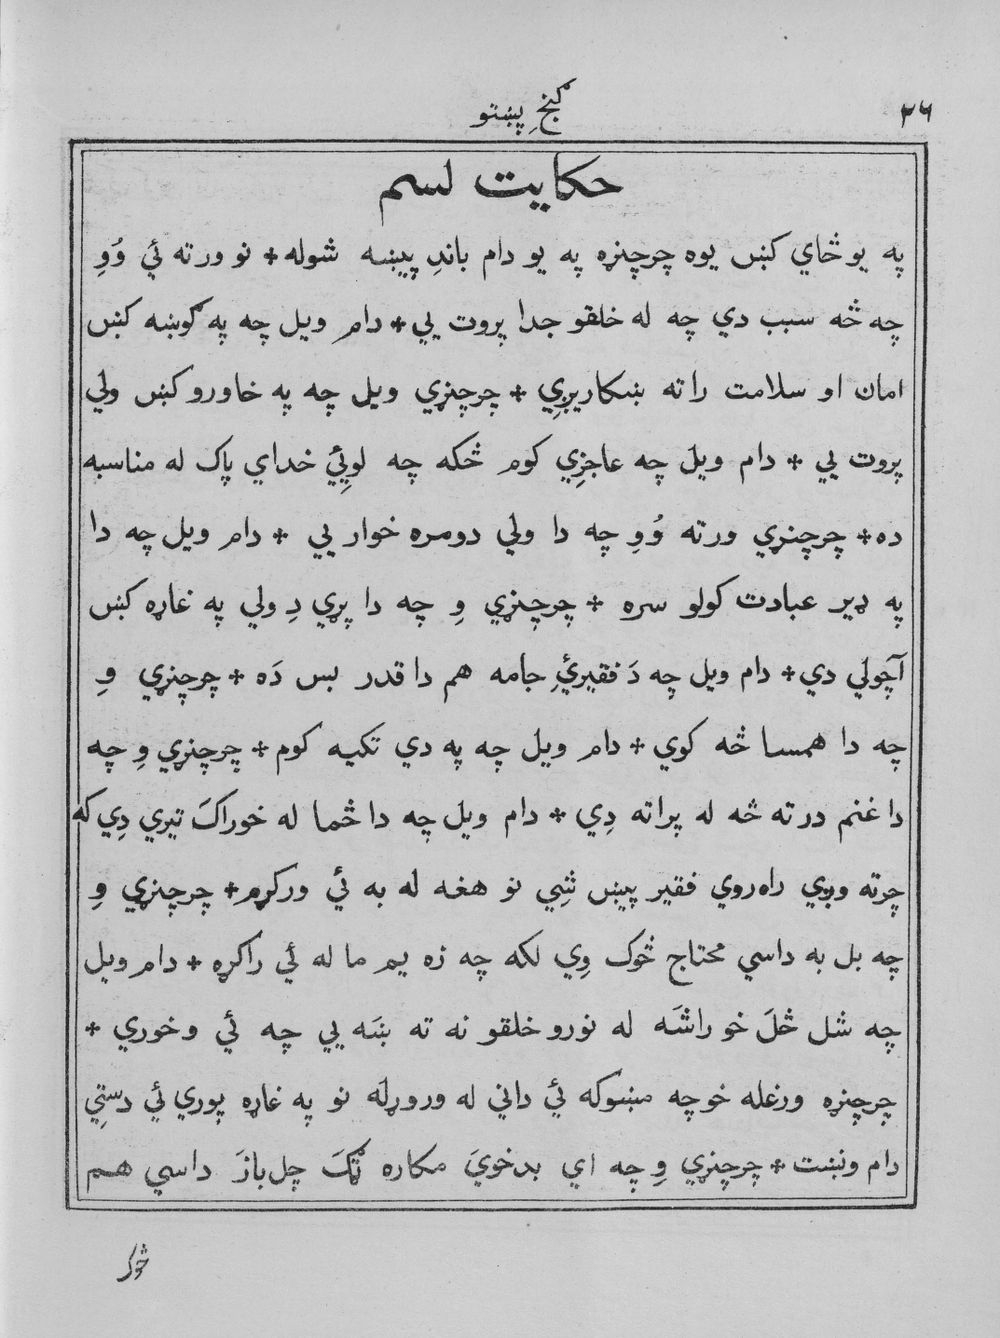 ٢٦
ګنجِ پښتو
حکایت لسم
په یو ځاي کښں یوه چرچنړه په یو دام باندِ پیښه شوله + نو ورته ئې وُوِ
چه څه سبب دي چه له خلقو جدا پروت یي + دام ویل چه په ګوښه کښں
امان او سلامت راته ښکاریږِي + چرچنړي ویل چه په خاورو کښں ولي
پروت یي + دام ویل چه عاجزِي کوم ځکه چه لوئِیْ خداي پاک له مناسبه
ده + چرچنړي ورته وُوِ چه دا ولي دومره خوار یي + دام ویل چه دا
په ډیر عبادت کولو سره + چرچنړي وِ چه دا پړي دِ ولي په غاړه کښں
آچولي دي + دام ویل چه دَ فقیرئِ جامه هم دا قدر بس دَه + چرچنړي وِ
چه دا همسا څه کوي + دام ویل چه په دي تکیه کوم + چرچنړي وِ چه
دا غنم درته څه له پراته دِي + دام ویل چه دا څما له خوراکَ تیري دِي که
چرته وږي راه‌روي فقیر پیښں شِي نو هغه له به ئې ورکړم + چرچنړي وِ
چه بل به داسي محتاج څوک وِي لکه چه زه یم ما له ئې راکړه + دام ویل
چه شل ځلَ خو راشَه له نورو خلقو نه ته ښَه یي چه ئې وخوري +
چرچنړه ورغله خو چه مښوکه ئې داني له وروړله نو په غاړه پوري ئې دستي
دام ونښت + چرچنړي وِ چه اي بدخويَ مکاره ټګَ چل‌بازَ داسي هم
څوک